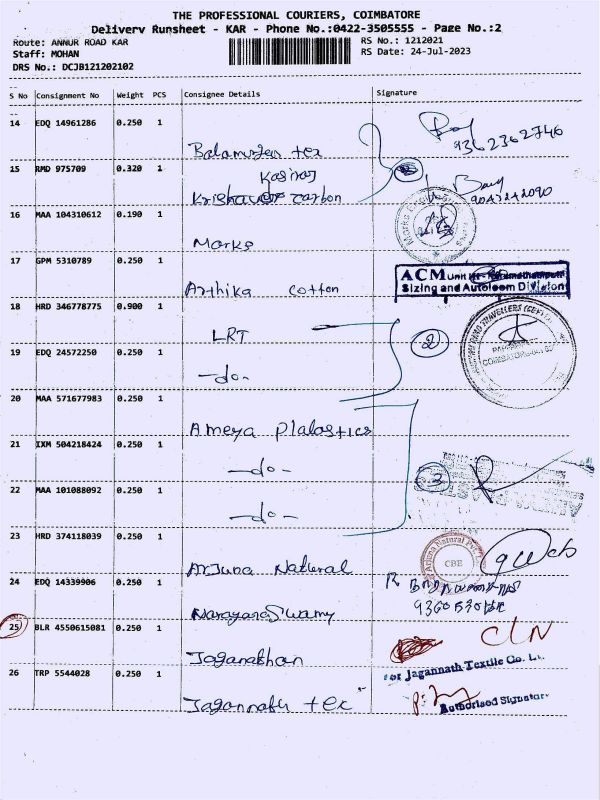 THE PROFESSIONAL COURIERS, COIMBATORE
Delivery Runsheet - KAR - Phone No.:0422-3505555 - Page No.:2
Route: ANNUR ROAD KAR
RS No.: 1212021
Staff: MOHAN
RS Date: 24-Jul-2023
DRS No.: DCJB121202102
S No Consignment No Weight PCS Consignee Details Signature
14 EDQ 14961286 0.250 1
9362362746
tex
15 RMD 975709 0.320 1
Kasiraj
carbon
16 MAA 104310612 0.190 1
Marks
17 GPM 5310789 0.250 1
Arthika cotton
ACM Unit
Sizing and Autoloom Division
18 HRD 346778775 0.900 1
LRT
2
19 EDQ 24572250 0.250 1
-do-
20 MAA 571677983 0.250 1
Ameya Plalastics
21 IXM 504218424 0.250 1
-do-
3
22 MAA 101088092 0.250 1
-do-
23 HRD 374118039 0.250 1
Arjuna Natural
CBE
24 EDQ 14339906 0.250 1
Narayanaswamy
25 BLR 4550615081 0.250 1
Jaganathan
For Jagannath Textile Co. Lt.
26 TRP 5544028 0.250 1
Jagannath tex
Authorised Signatory